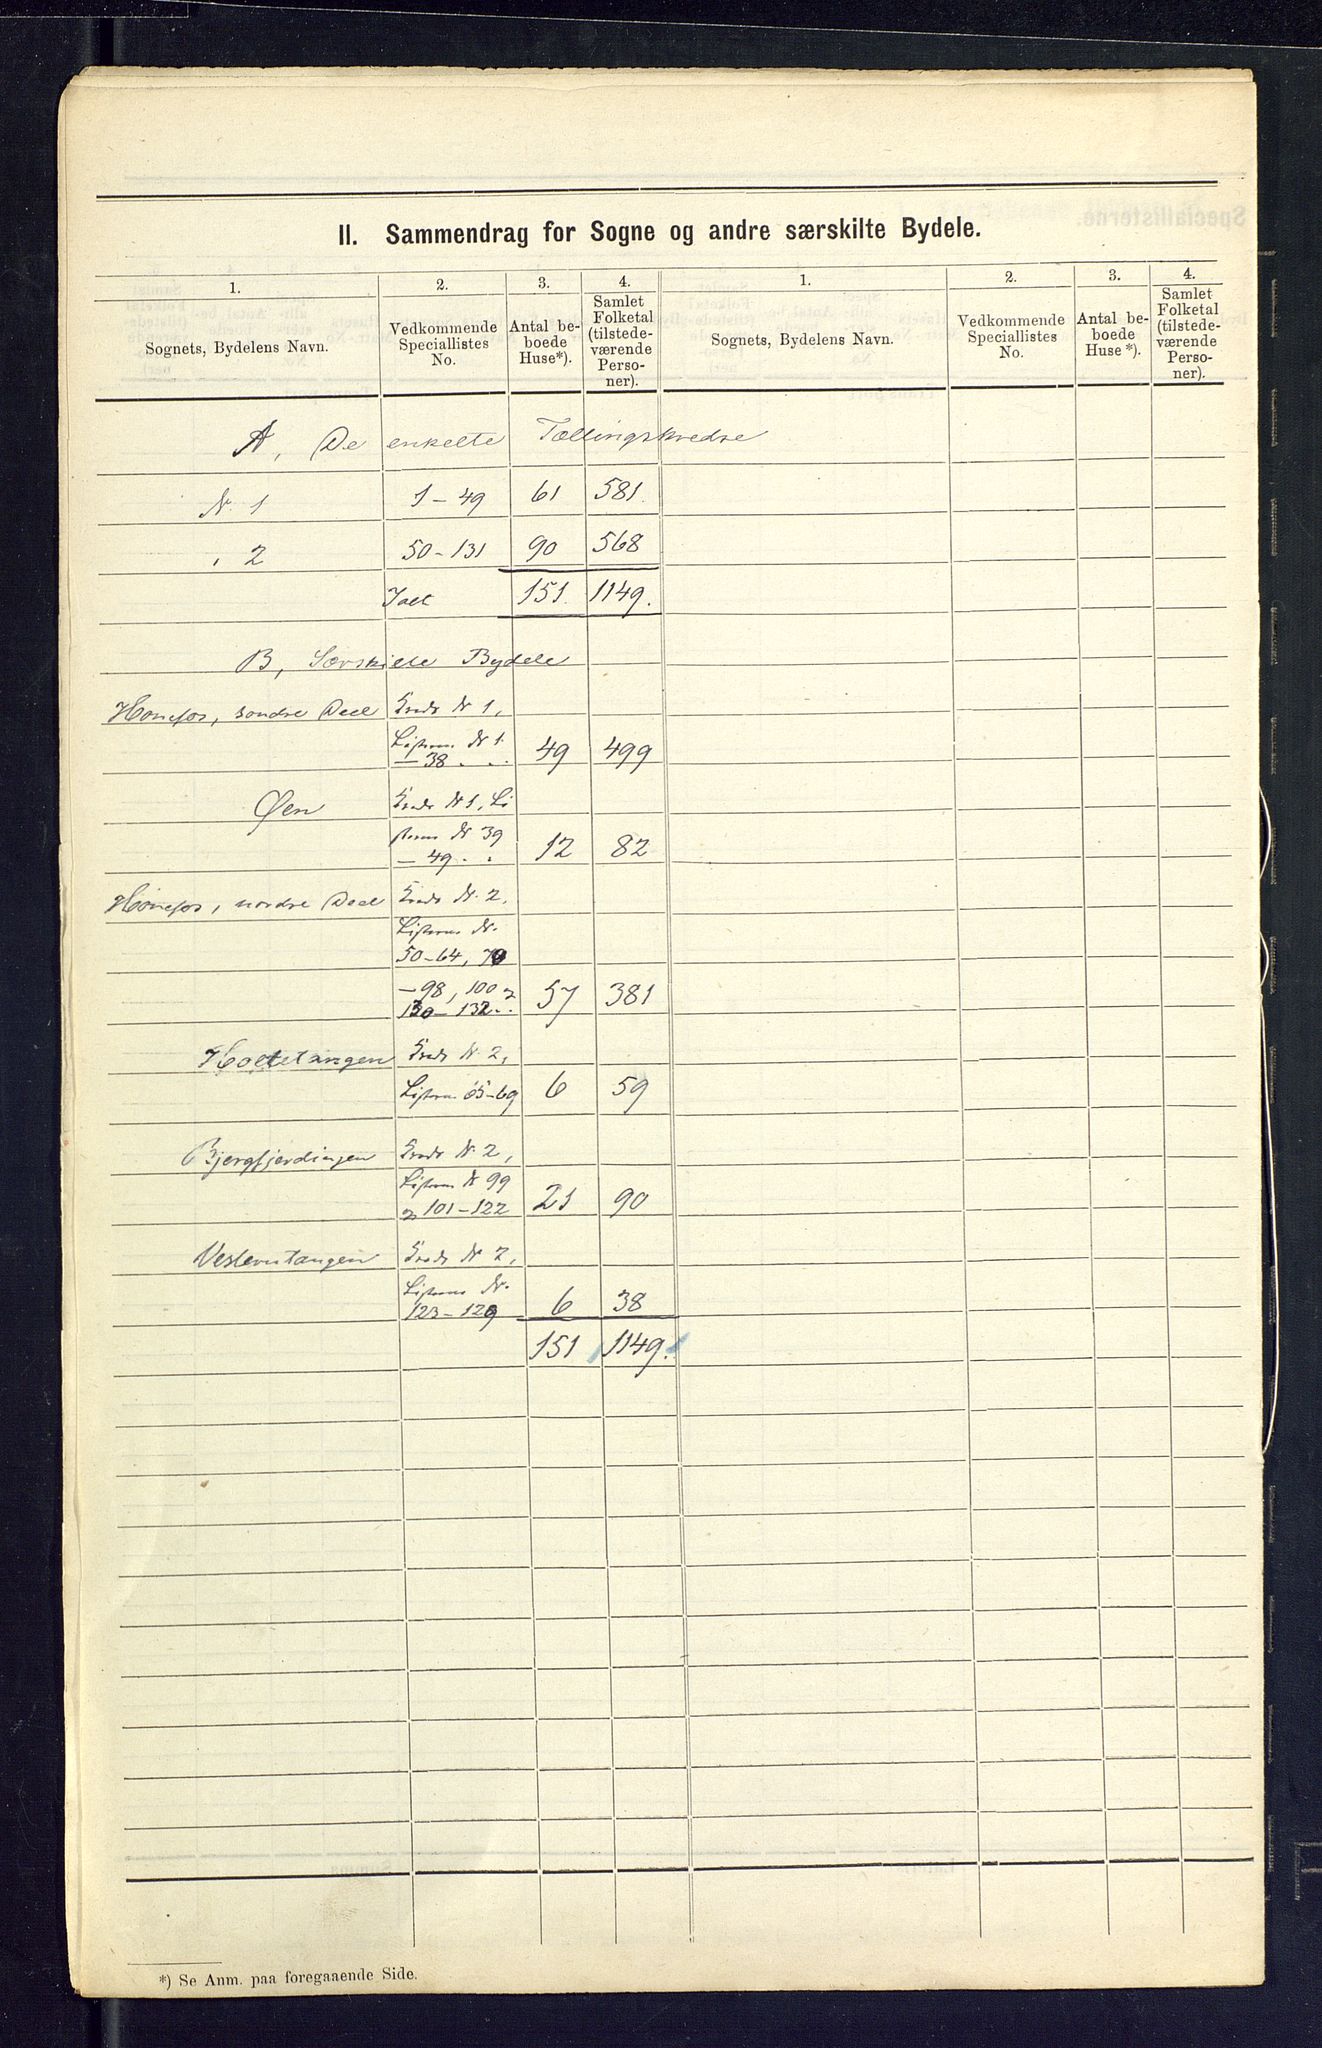 II. Sammendrag for Sogne og andre særskilte Bydele.
1. 2. 3. 4. 1. 2. 3. 4.
Sognets, Bydelens Navn.
Vedkommende
Speciallistes
No.
Antal be-
boede
Huse*).
Samlet
Folketal
(tilstede-
værende
Perso-
ner).
Sognets, Bydelens Navn.
Vedkommende
Speciallistes
No.
Antal be-
boede
Huse*).
Samlet
Folketal
(tilstede-
værende
Perso-
ner).
A, De enkelte Tællingskredse
N. 1 1-49 61 581.
" 2 50-131 90 568
Ialt 151. 1149.
B, Særskilte Bydele
Hønefos, søndre Deel Kreds Nr 1,
Listerne Nr 1.
-38 . . 49 499
Øen Kreds Nr 1, Li
sterne Nr 39
-49 . . 12 82
Hønefos, nordre Deel Kreds Nr. 2,
Listerne Nr.
50-64, 70
-98, 100 og
130-132 . . 57 381
Holtetangen Kreds Nr. 2,
Listerne 65-69 6 59
Bjergfjerdingen Kreds Nr. 2,
Listerne Nr 99
og 101-122 21 90
Vesterntangen Kreds Nr 2,
Listerne Nr.
123-129 6 38
151 1149.
*) Se Anm. paa foregaaende Side.